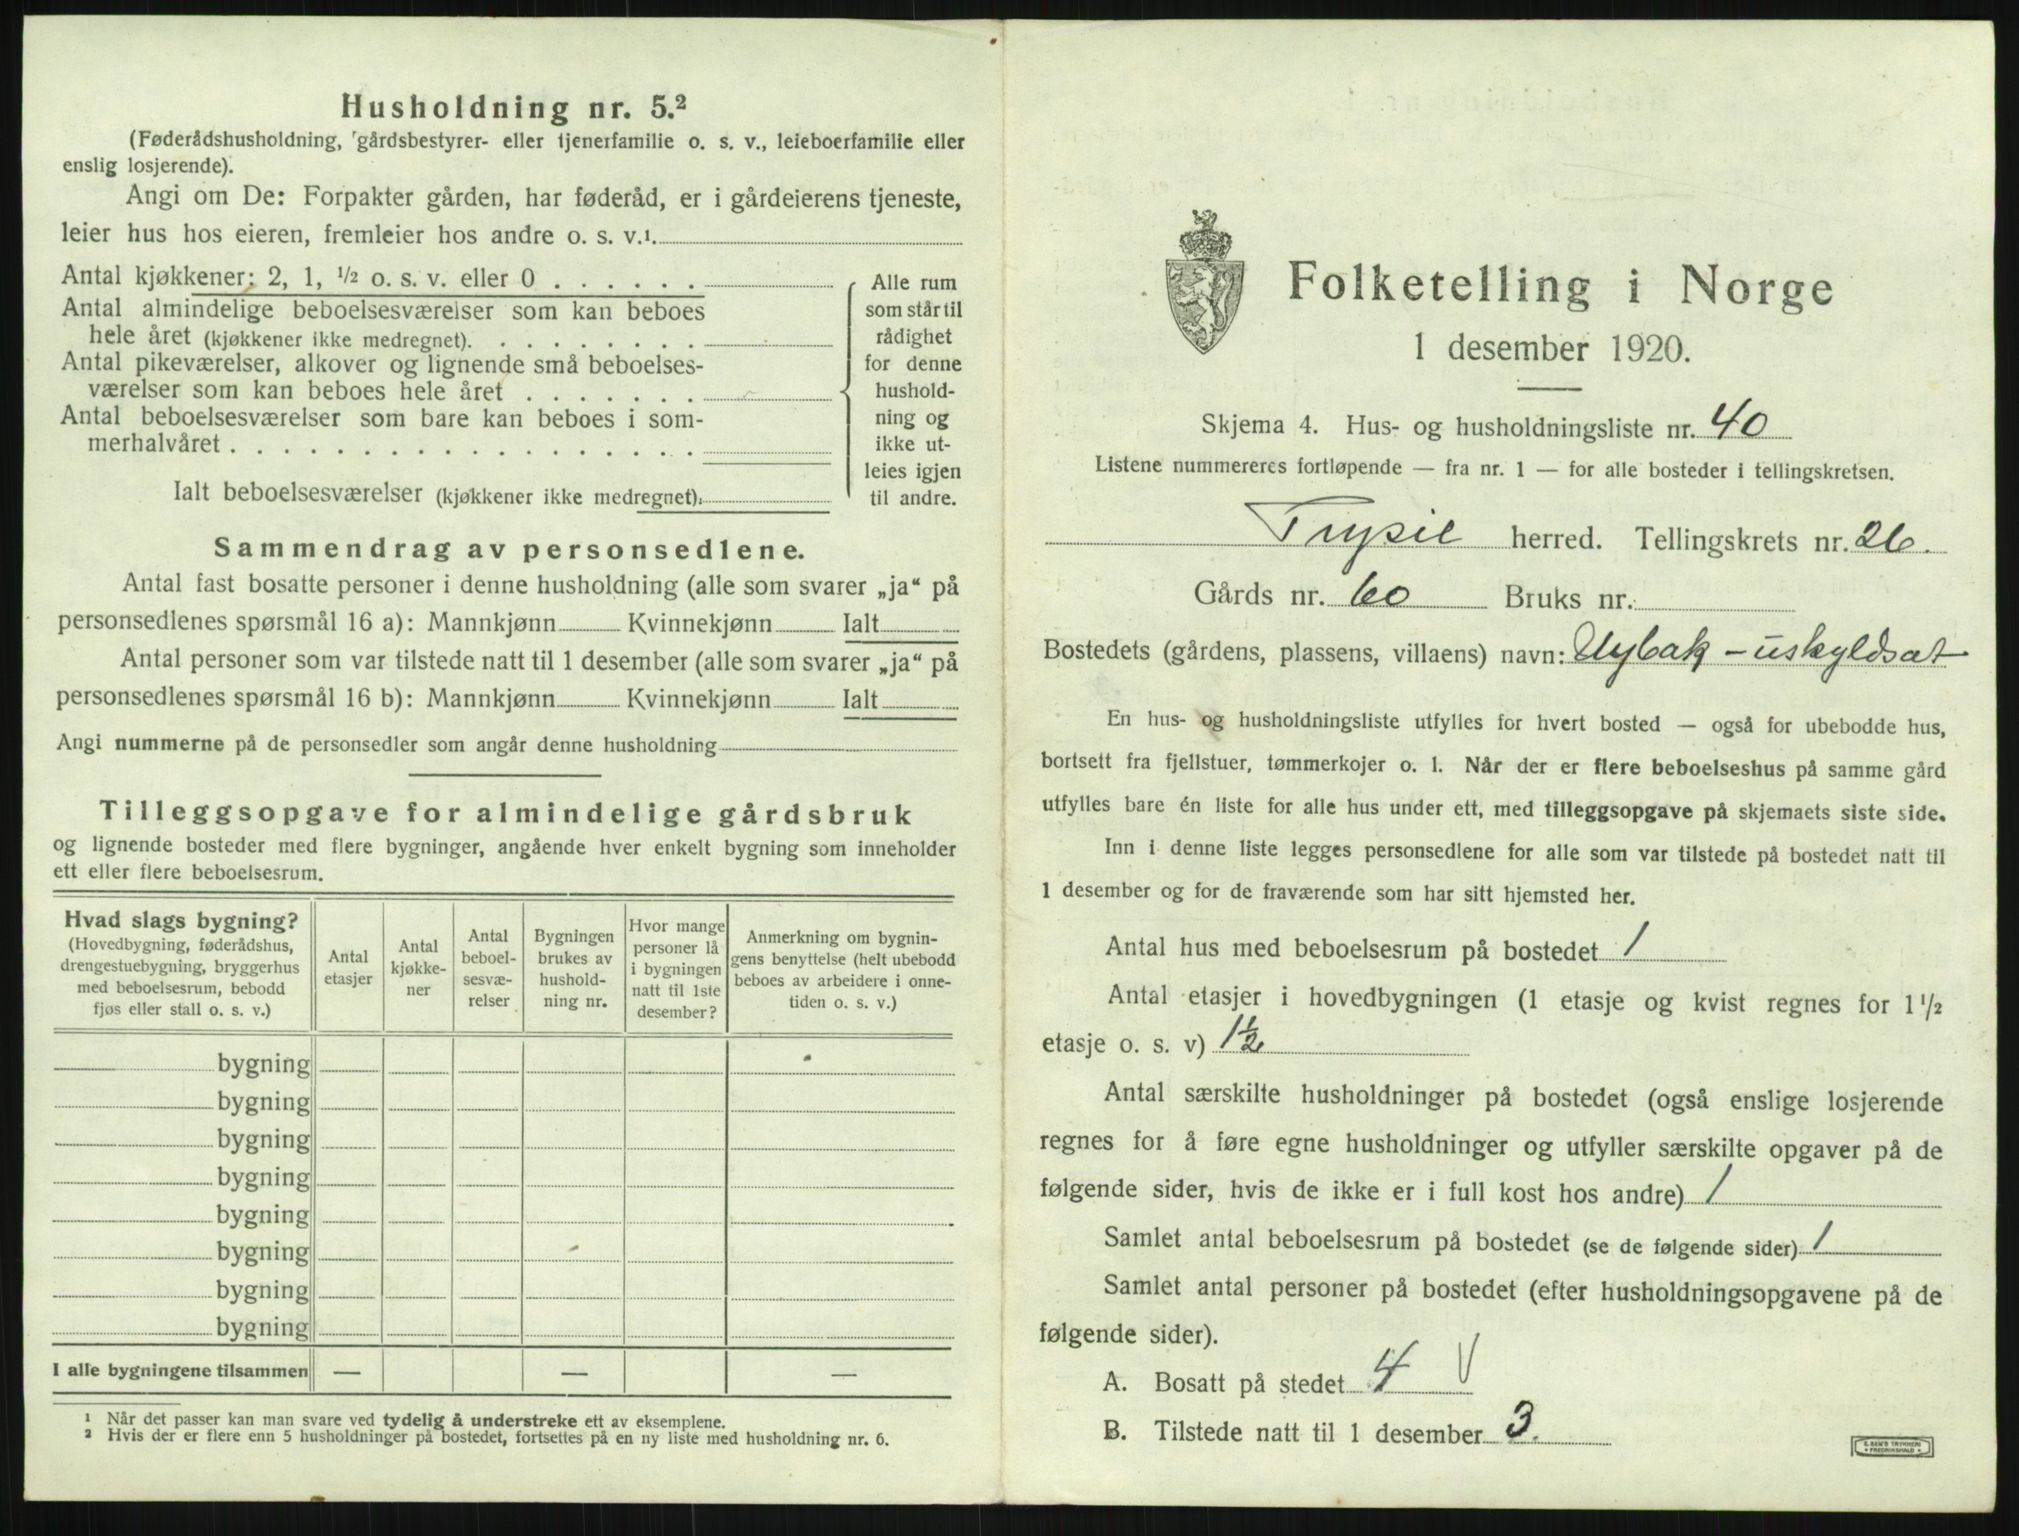 Husholdning nr. 5.²
(Føderådshusholdning, gårdsbestyrer- eller tjenerfamilie o. s. v., leieboerfamilie eller
enslig losjerende).
Angi om De: Forpakter gården, har føderåd, er i gårdeierens tjeneste,
leier hus hos eieren, fremleier hos andre o. s. v.¹
Antal kjøkkener: 2, 1, ½ o. s. v. eller 0 . . . . . .
Antal almindelige beboelsesværelser som kan beboes
hele året (kjøkkener ikke medregnet). . . . . . . . .
Antal pikeværelser, alkover og lignende små beboelses-
værelser som kan beboes hele året . . . . . . .
Antal beboelsesværelser som bare kan beboes i som-
merhalvåret . . . . . . . . . . . . . . . . . .
Ialt beboelsesværelser (kjøkkener ikke medregnet).
Alle rum
som står til
rådighet
for denne
hushold-
ning og
ikke ut-
leies igjen
til andre.
Sammendrag av personsedlene.
Antal fast bosatte personer i denne husholdning (alle som svarer „ja“ på
personsedlenes spørsmål 16 a): Mannkjønn Kvinnekjønn Ialt
Antal personer som var tilstede natt til 1 desember (alle som svarer „ja“ på
personsedlenes spørsmål 16 b): Mannkjønn Kvinnekjønn Ialt
Angi nummerne på de personsedler som angår denne husholdning
Tilleggsopgave for almindelige gårdsbruk
og lignende bosteder med flere bygninger, angående hver enkelt bygning som inneholder
ett eller flere beboelsesrum.
Hvad slags bygning?
(Hovedbygning, føderådshus,
drengestuebygning, bryggerhus
med beboelsesrum, bebodd
fjøs eller stall o. s. v.)
Antal
etasjer
Antal
kjøkke-
ner
Antal
beboel-
sesvæ-
relser
Bygningen
brukes av
hushold-
ning nr.
Hvor mange
personer lå
i bygningen
natt til 1ste
desember?
Anmerkning om bygnin-
gens benyttelse (helt ubebodd
beboes av arbeidere i onne-
tiden o. s. v.)
bygning
bygning
bygning
bygning
bygning
bygning
bygning
bygning
I alle bygningene tilsammen — — —
¹ Når det passer kan man svare ved tydelig å understreke ett av eksemplene.
² Hvis der er flere enn 5 husholdninger på bostedet, fortsettes på en ny liste med husholdning nr. 6.
Folketelling i Norge
1 desember 1920.
Skjema 4. Hus- og husholdningsliste nr. 40
Listene nummereres fortløpende — fra nr. 1 — for alle bosteder i tellingskretsen.
Trysil herred. Tellingskrets nr. 26.
Gårds nr. 60 Bruks nr.
Bostedets (gårdens, plassens, villaens) navn: Nybak - uskyldsat
En hus- og husholdningsliste utfylles for hvert bosted — også for ubebodde hus,
bortsett fra fjellstuer, tømmerkojer o. l. Når der er flere beboelseshus på samme gård
utfylles bare én liste for alle hus under ett, med tilleggsopgave på skjemaets siste side.
Inn i denne liste legges personsedlene for alle som var tilstede på bostedet natt til
1 desember og for de fraværende som har sitt hjemsted her.
Antal hus med beboelsesrum på bostedet 1
Antal etasjer i hovedbygningen (1 etasje og kvist regnes for 1 ½
etasje o. s. v) 1½
Antal særskilte husholdninger på bostedet (også enslige losjerende
regnes for å føre egne husholdninger og utfyller særskilte opgaver på de
følgende sider, hvis de ikke er i full kost hos andre) 1
Samlet antal beboelsesrum på bostedet (se de følgende sider) 1
Samlet antal personer på bostedet (efter husholdningsopgavene på de
følgende sider).
A. Bosatt på stedet 4 V
B. Tilstede natt til 1 desember 3.
E. SEM'S TRYKKERI
FREDRIKSHALD